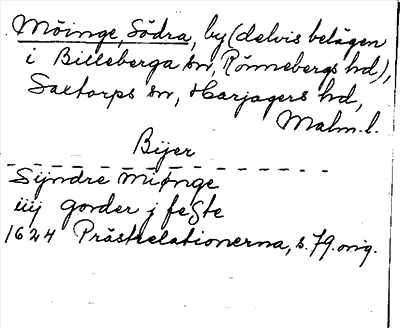 Möinge, Södra, by (delvis belägen
i Billeberga sn, Rönnebergs hd),
Saxtorps sn, Harjagers hd,
Malm. l.
Bijer
Syndre Miönge
iiij gorder j feste
1624 Prästrelationerna, s. 79. orig.